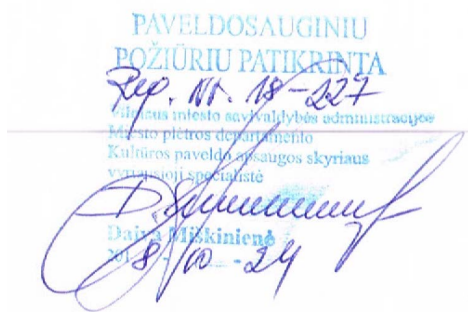 PAVELDOSAUGINIU
POŽIŪRIU PATIKRINTA
Reg. Nr. 18-227
Vilniaus miesto savivaldybės administracijos
Miesto plėtros departamento
Kultūros paveldo apsaugos skyriaus
vyriausioji specialistė
Daiva Miškinienė
2018-10-24